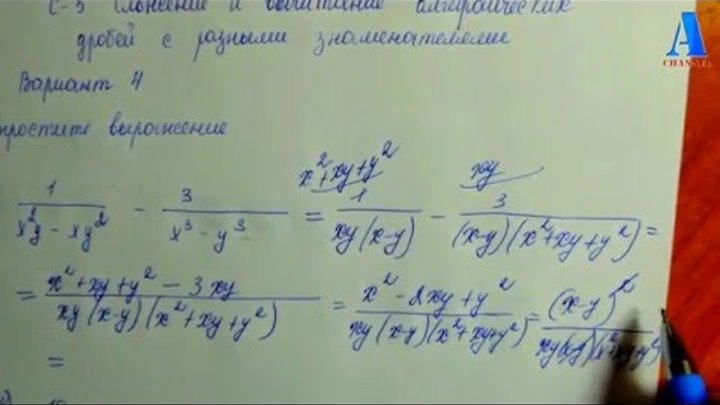 С-3 Сложение и вычитание алгебраических
дробей с разными знаменателями
A
CHANNEL
Вариант 4
простите выражение
x² + xy + y² xy
1/(x²y - xy²) - 3/(x³ - y³) = 1/(xy(x-y)) - 3/((x-y)(x²+xy+y²)) =
= (x² + xy + y² - 3xy)/(xy(x-y)(x²+xy+y²)) = (x² - 2xy + y²)/(xy(x-y)(x²+xy+y²)) = (x-y)²/(xy(x-y)(x²+xy+y²))
=